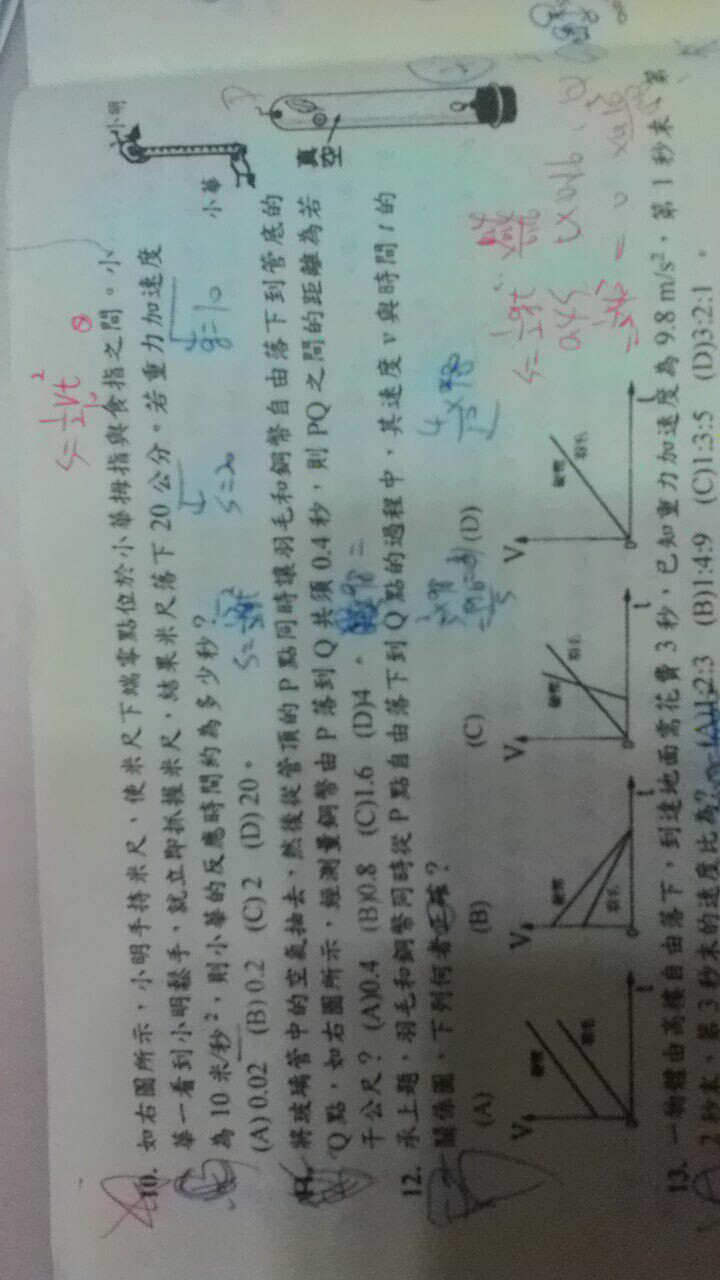 10. 如右圖所示，小明手持米尺，使米尺下端零點位於小華拇指與食指之間。小
華一看到小明鬆手，就立即抓握米尺，結果米尺落下 20 公分。若重力加速度
為 10 米/秒²，則小華的反應時間約為多少秒？
(A) 0.02 (B) 0.2 (C) 2 (D) 20。
小明
小華
S=½Vt²
g=10
S=20
11. 將玻璃管中的空氣抽去，然後從管頂的 P 點同時讓羽毛和銅幣自由落下到管底的
Q 點，如右圖所示，經測量銅幣由 P 落到 Q 共須 0.4 秒，則 PQ 之間的距離為若
干公尺？ (A)0.4 (B)0.8 (C)1.6 (D)4。
真空
P
Q
12. 承上題，羽毛和銅幣同時從 P 點自由落下到 Q 點的過程中，其速度 v 與時間 t 的
關係圖，下列何者正確？
(A) (B) (C) (D)
V 銅幣 羽毛 0 t
V 銅幣 羽毛 0 t
V 銅幣 羽毛 0 t
V 銅幣 羽毛 0 t
S=½gt²
13. 一物體由高樓自由落下，到達地面需花費 3 秒，已知重力加速度為 9.8 m/s²，第 1 秒末、第
2 秒末、第 3 秒末的速度比為？ (A)1:2:3 (B)1:4:9 (C)1:3:5 (D)3:2:1。